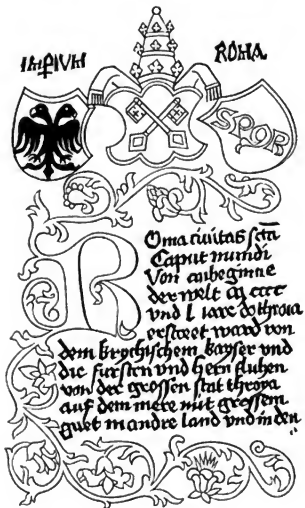 IMPIVM
ROMA
SPQR
Roma civitas scta
Caput mundi
Von anbeginne
der welt
und l iare do throia
erstoeret ward von
dem kryechischem kayser und
die fürsten und hern fluhen
von der grossen stat throya
auf dem mere mit grossem
guet in andre land und in den